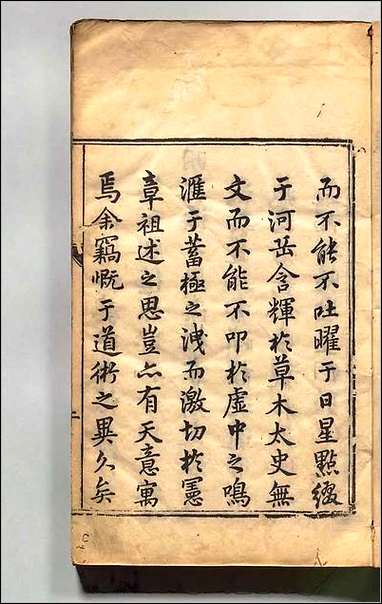 而不能不吐曜于日星點綴
于河岳含輝於草木太史無
文而不能不叩於虛中之鳴
滙于蓄極之洩而激切於憲
章祖述之思豈亦有天意寓
焉余竊慨于道術之異久矣